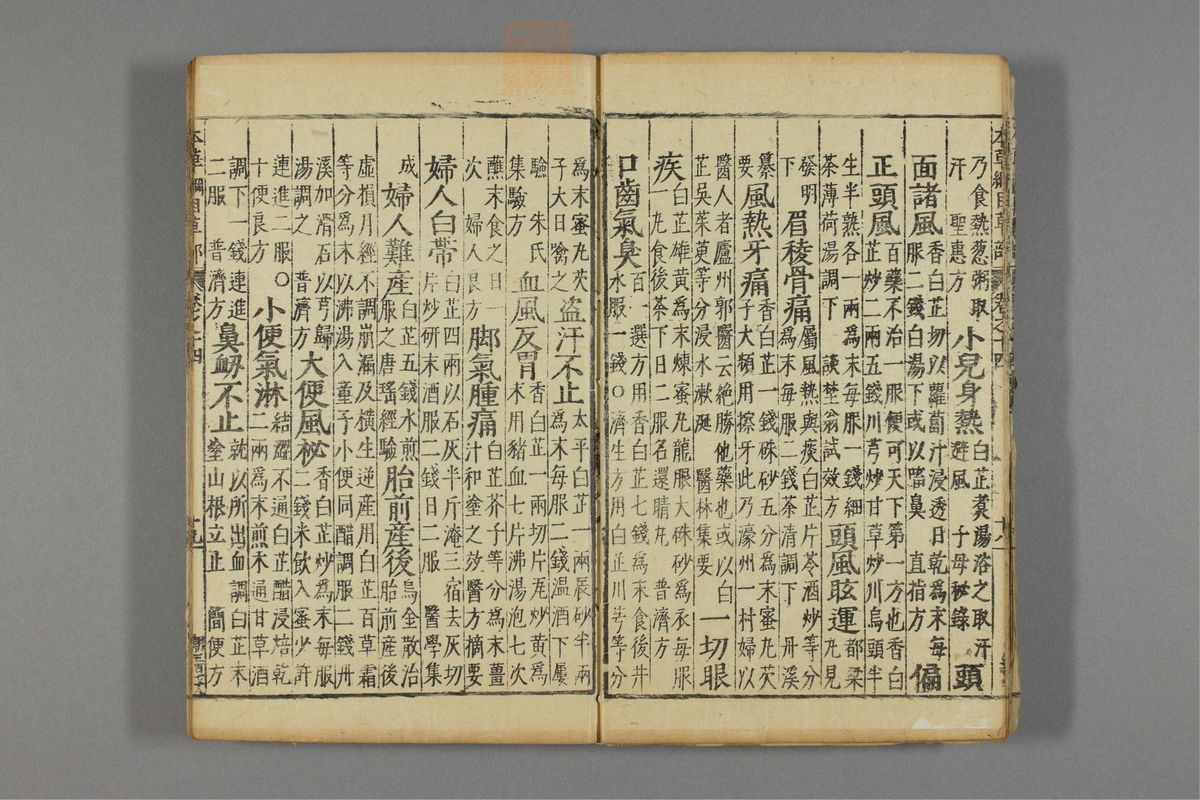 本草綱目草部 卷之十四 十八
乃食熱葱粥取
汗 聖惠方
小兒身熱
白芷煮湯浴之取汗
避風 子母秘錄
頭
面諸風
香白芷切以蘿蔔汁浸透日乾爲末每
服二錢白湯下或以㗜鼻 直指方
偏
正頭風
百藥不治一服便可天下第一方也香白
芷炒二兩五錢川芎炒甘草炒川烏頭半
生半熟各一兩爲末每服一錢細
茶薄荷湯調下 談埜翁試效方
頭風眩運
都梁
丸見
發明
下
眉稜骨痛
屬風熱與痰白芷片芩酒炒等分
爲末每服二錢茶清調下 丹溪
纂
要
風熱牙痛
香白芷一錢硃砂五分爲末蜜丸芡
子大頻用擦牙此乃濠州一村婦以
醫人者廬州郭醫云絶勝他藥也或以白
芷吳茱萸等分浸水漱涎 醫林集要
一切眼
疾
白芷雄黃爲末煉蜜丸龍眼大硃砂爲衣每服
一丸食後茶下日二服名還睛丸 普濟方
口齒氣臭
百一選方用香白芷七錢爲末食後井
水服一錢○濟生方用白芷川芎等分
爲末蜜丸芡
子大日噙之
盗汗不止
太平白芷一兩辰砂半兩
爲末每服二錢溫酒下屢
驗 朱氏
集驗方
血風反胃
香白芷一兩切片瓦炒黃爲
末用豬血七片沸湯泡七次
蘸末食之日一
次 婦人良方
脚氣腫痛
白芷芥子等分爲末薑
汁和塗之效醫方摘要
婦人白帶
白芷四兩以石灰半斤淹三宿去灰切
片炒研末酒服二錢日二服 醫學集
成
婦人難產
白芷五錢水煎
服之唐瑤經驗
胎前產後
烏金散治
胎前產後
虛損月經不調崩漏及横生逆產用白芷百草霜
等分爲末以沸湯入童子小便同醋調服二錢丹
溪加滑石以芎歸
湯調之 普濟方
大便風秘
香白芷炒爲末每服
二錢米飲入蜜少許
連進二服○
十便良方
小便氣淋
結澀不通白芷醋浸焙乾
二兩爲末煎木通甘草酒
調下一錢連進
二服 普濟方
鼻衂不止
就以所出血調白芷末
塗山根立止 簡便方
本草綱目草部 卷之十四 十九